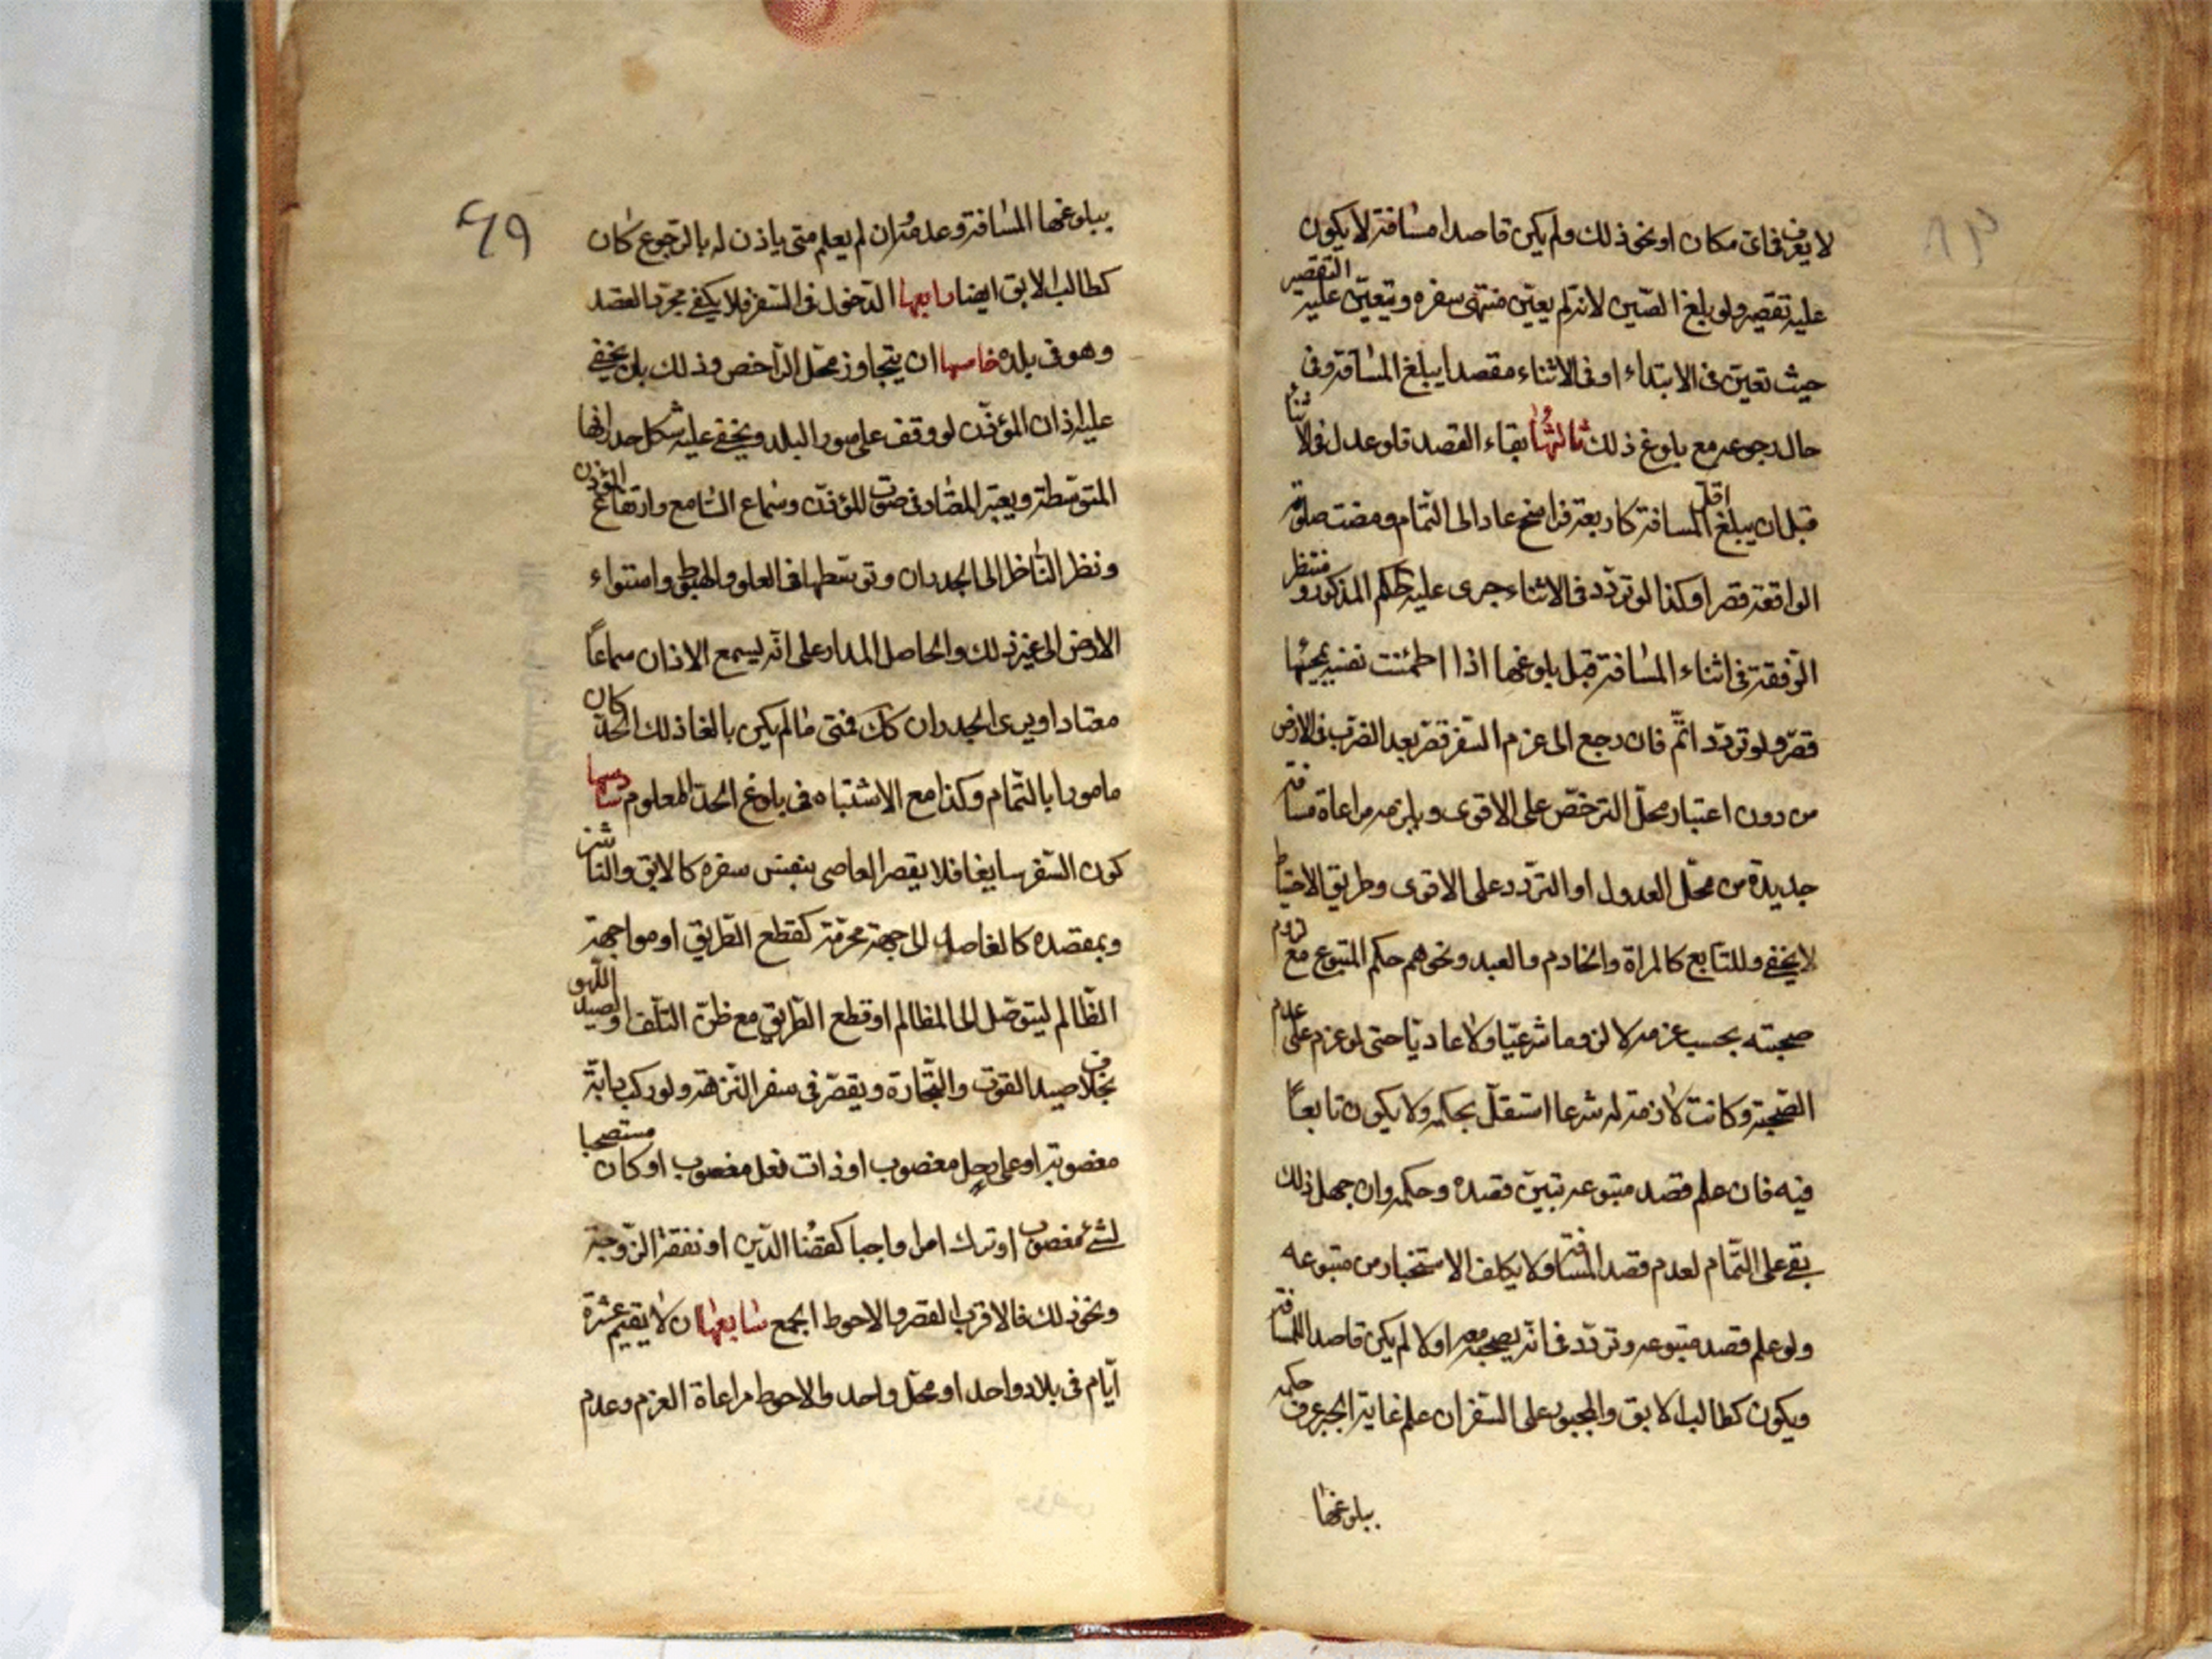 لا يعرف فى اى مكان او نحو ذلك ولم يكن قاصدا مسافة لا يكون
عليه تقصير ولو بلغ الصين لانه لم يعين منتهى سفره ويتعين عليه التقصير
حيث تعين فى الابتداء او فى الاثناء مقصدا يبلغ المسافة وفى
حال رجوعه مع بلوغ ذلك ثالثها بقاء القصد فلو عدل فى الاثناء
قبل ان يبلغ اقل المسافة كاربعة فراسخ عاد الى التمام ومضت صلوته
الواقعة قصرا وكذا لو تردد فى الاثناء جرى عليه الحكم المذكور ومنتظر
الرفقة فى اثناء المسافة قبل بلوغها اذا اطمئنت نفسه بمجيئها
قصر ولو تردد اتم فان رجع الى عزم السفر قصر بعد الضرب فى الارض
من دون اعتبار محل الترخص على الاقوى ويلزمه مراعاة مسافة
جديدة من محل العدول او التردد على الاقوى وطريق الاحتياط
لا يخفى وللتابع كالمراة والخادم والعبد ونحوهم حكم المتبوع مع لزوم
صحبته بحسب عزمه لا لزوما شرعيا ولا عاديا حتى لو عزم على عدم
الصحبة وكانت لازمة له شرعا استقل بحكمه ولا يكون تابعا
فيه فان علم قصد متبوعه تبين قصده وحكمه وان جهل ذلك
بقى على التمام لعدم قصد المسافة ولا يكلف الاستخبار من متبوعه
ولو علم قصد متبوعه وتردد فى انه يصحبه او لا لم يكن قاصدا للمسافة
ويكون كطالب الابق والمجبور على السفر ان علم غاية الجبر عرف حكمه
ببلوغها
٤٩
ببلوغها المسافة وعدمه وان لم يعلم متى ياذن له بالرجوع كان
كطالب الابق ايضا رابعها الدخول فى السفر فلا يكفى مجرد القصد
وهو فى بلده خامسها ان يتجاوز محل التراخص وذلك بان يخفى
عليه اذان المؤذن لو وقف على سور البلد ويخفى عليه شكل جدرانها
المتوسطة ويعتبر المعتاد فى صوت المؤذن وسماع السامع وارتفاع المؤذن
ونظر الناظر الى الجدران وتوسطها فى العلو والهبوط واستواء
الارض الى غير ذلك والحاصل المدار على انه ليسمع الاذان سماعا
معتادا ويرى الجدران كك فمتى ما لم يكن بالغا ذلك الحد كان
مامورا بالتمام وكذا مع الاشتباه فى بلوغ الحد المعلوم سادسها
كون السفر سايغا فلا يقصر العاصى بنفس سفره كالابق والناشز
وبمقصده كالقاصد الى جهة محرمة كقطع الطريق او مواجهة
الظالم ليتوصل الى المظالم او قطع الطريق مع ظن التلف او لصيد اللهو
بخلاف صيد القوت والتجارة ويقصر فى سفر النزهة ولو ركب دابة
مغصوبة او على رحل مغصوب او ذات نعل مغصوب او كان مستصحبا
لشئ مغصوب او ترك امرا واجبا كقضا الدين او نفقة الزوجة
ونحو ذلك فالاقرب القصر والاحوط الجمع سابعها ان لا يقيم عشرة
ايام فى بلاد واحد او محل واحد والاحوط مراعاة العزم وعدم